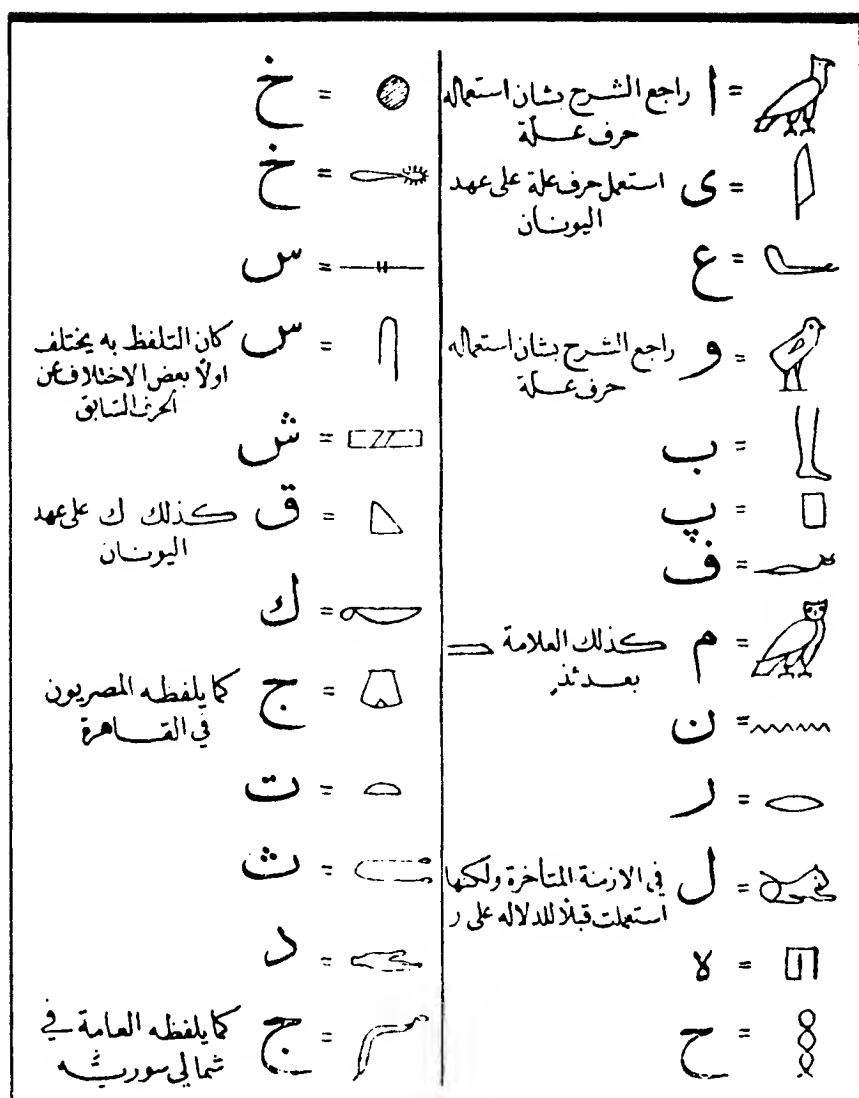 = ا راجع الشرح بشان استعماله
حرف علّة
= ى استعمل حرف علة على عهد
اليونان
= ع
= و راجع الشرح بشان استعماله
حرف علّة
= ب
= پ
= ف
= م كذلك العلامة
بعدئذٍ
= ن
= ر
= ل في الازمنة المتأخرة ولكنها
استعملت قبلًا للدلاله على ر
= ﻻ
= ح
= خ
= خ
= س
= س كان التلفظ به يختلف
اولًا بعض الاختلاف عن
الحرف السابق
= ش
= ق كذلك ك على عهد
اليونان
= ك
= ج كما يلفظه المصريون
في القاهرة
= ت
= ث
= د
= ج كما يلفظه العامة في
شمالي سوريّه